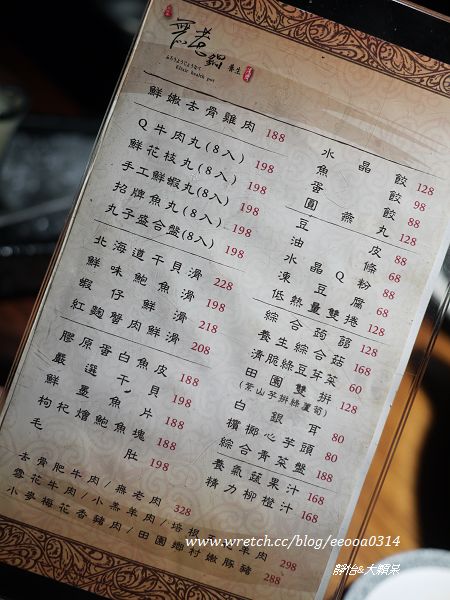 無老鍋 養生
Elixir health pot
鮮嫩去骨雞肉 188
Q牛肉丸(8入) 198
鮮花枝丸(8入) 198
手工鮮蝦丸(8入) 198
招牌魚丸(8入) 198
丸子盛合盤(8入) 198
北海道干貝滑 228
鮮味鮑魚滑 198
蝦仔鮮滑 218
紅麴蟹肉鮮滑 208
膠原蛋白魚皮 188
嚴選干貝 198
鮮墨魚片 188
枸杞燴鮑魚塊 188
毛肚 198
去骨肥牛肉/燕老肉 328
雪花牛肉/小羔羊肉/培根羊肉 298
小麥梅花香豬肉/田園鄉村嫩豚豬 288
水晶餃 128
魚餃 98
蛋餃 88
圓燕丸 128
豆皮 88
油條 68
水晶Q粉 88
凍豆腐 68
低熱量雙捲 128
綜合蒟蒻 128
養生綜合菇 168
清脆綠豆芽菜 60
田園雙拼 128
(紫山芋拼綠蘆筍)
白銀耳 80
檳榔心芋頭 80
綜合青菜盤 188
養氣蔬果汁 168
精力柳橙汁 168
www.wretch.cc/blog/eeooa0314
靜怡&大顆呆